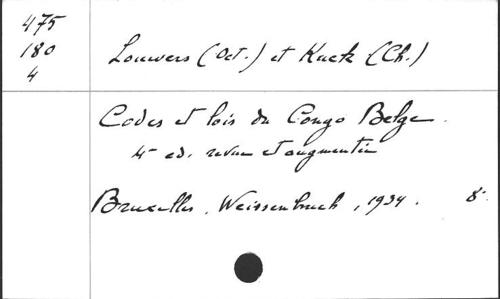 475
180
4
Louwers (Oct.) et Kuck (Ch.)
Codes et lois du Congo Belge.
4e ed. revue et augmentée
Bruxelles, Weissenbruch, 1934. 8°